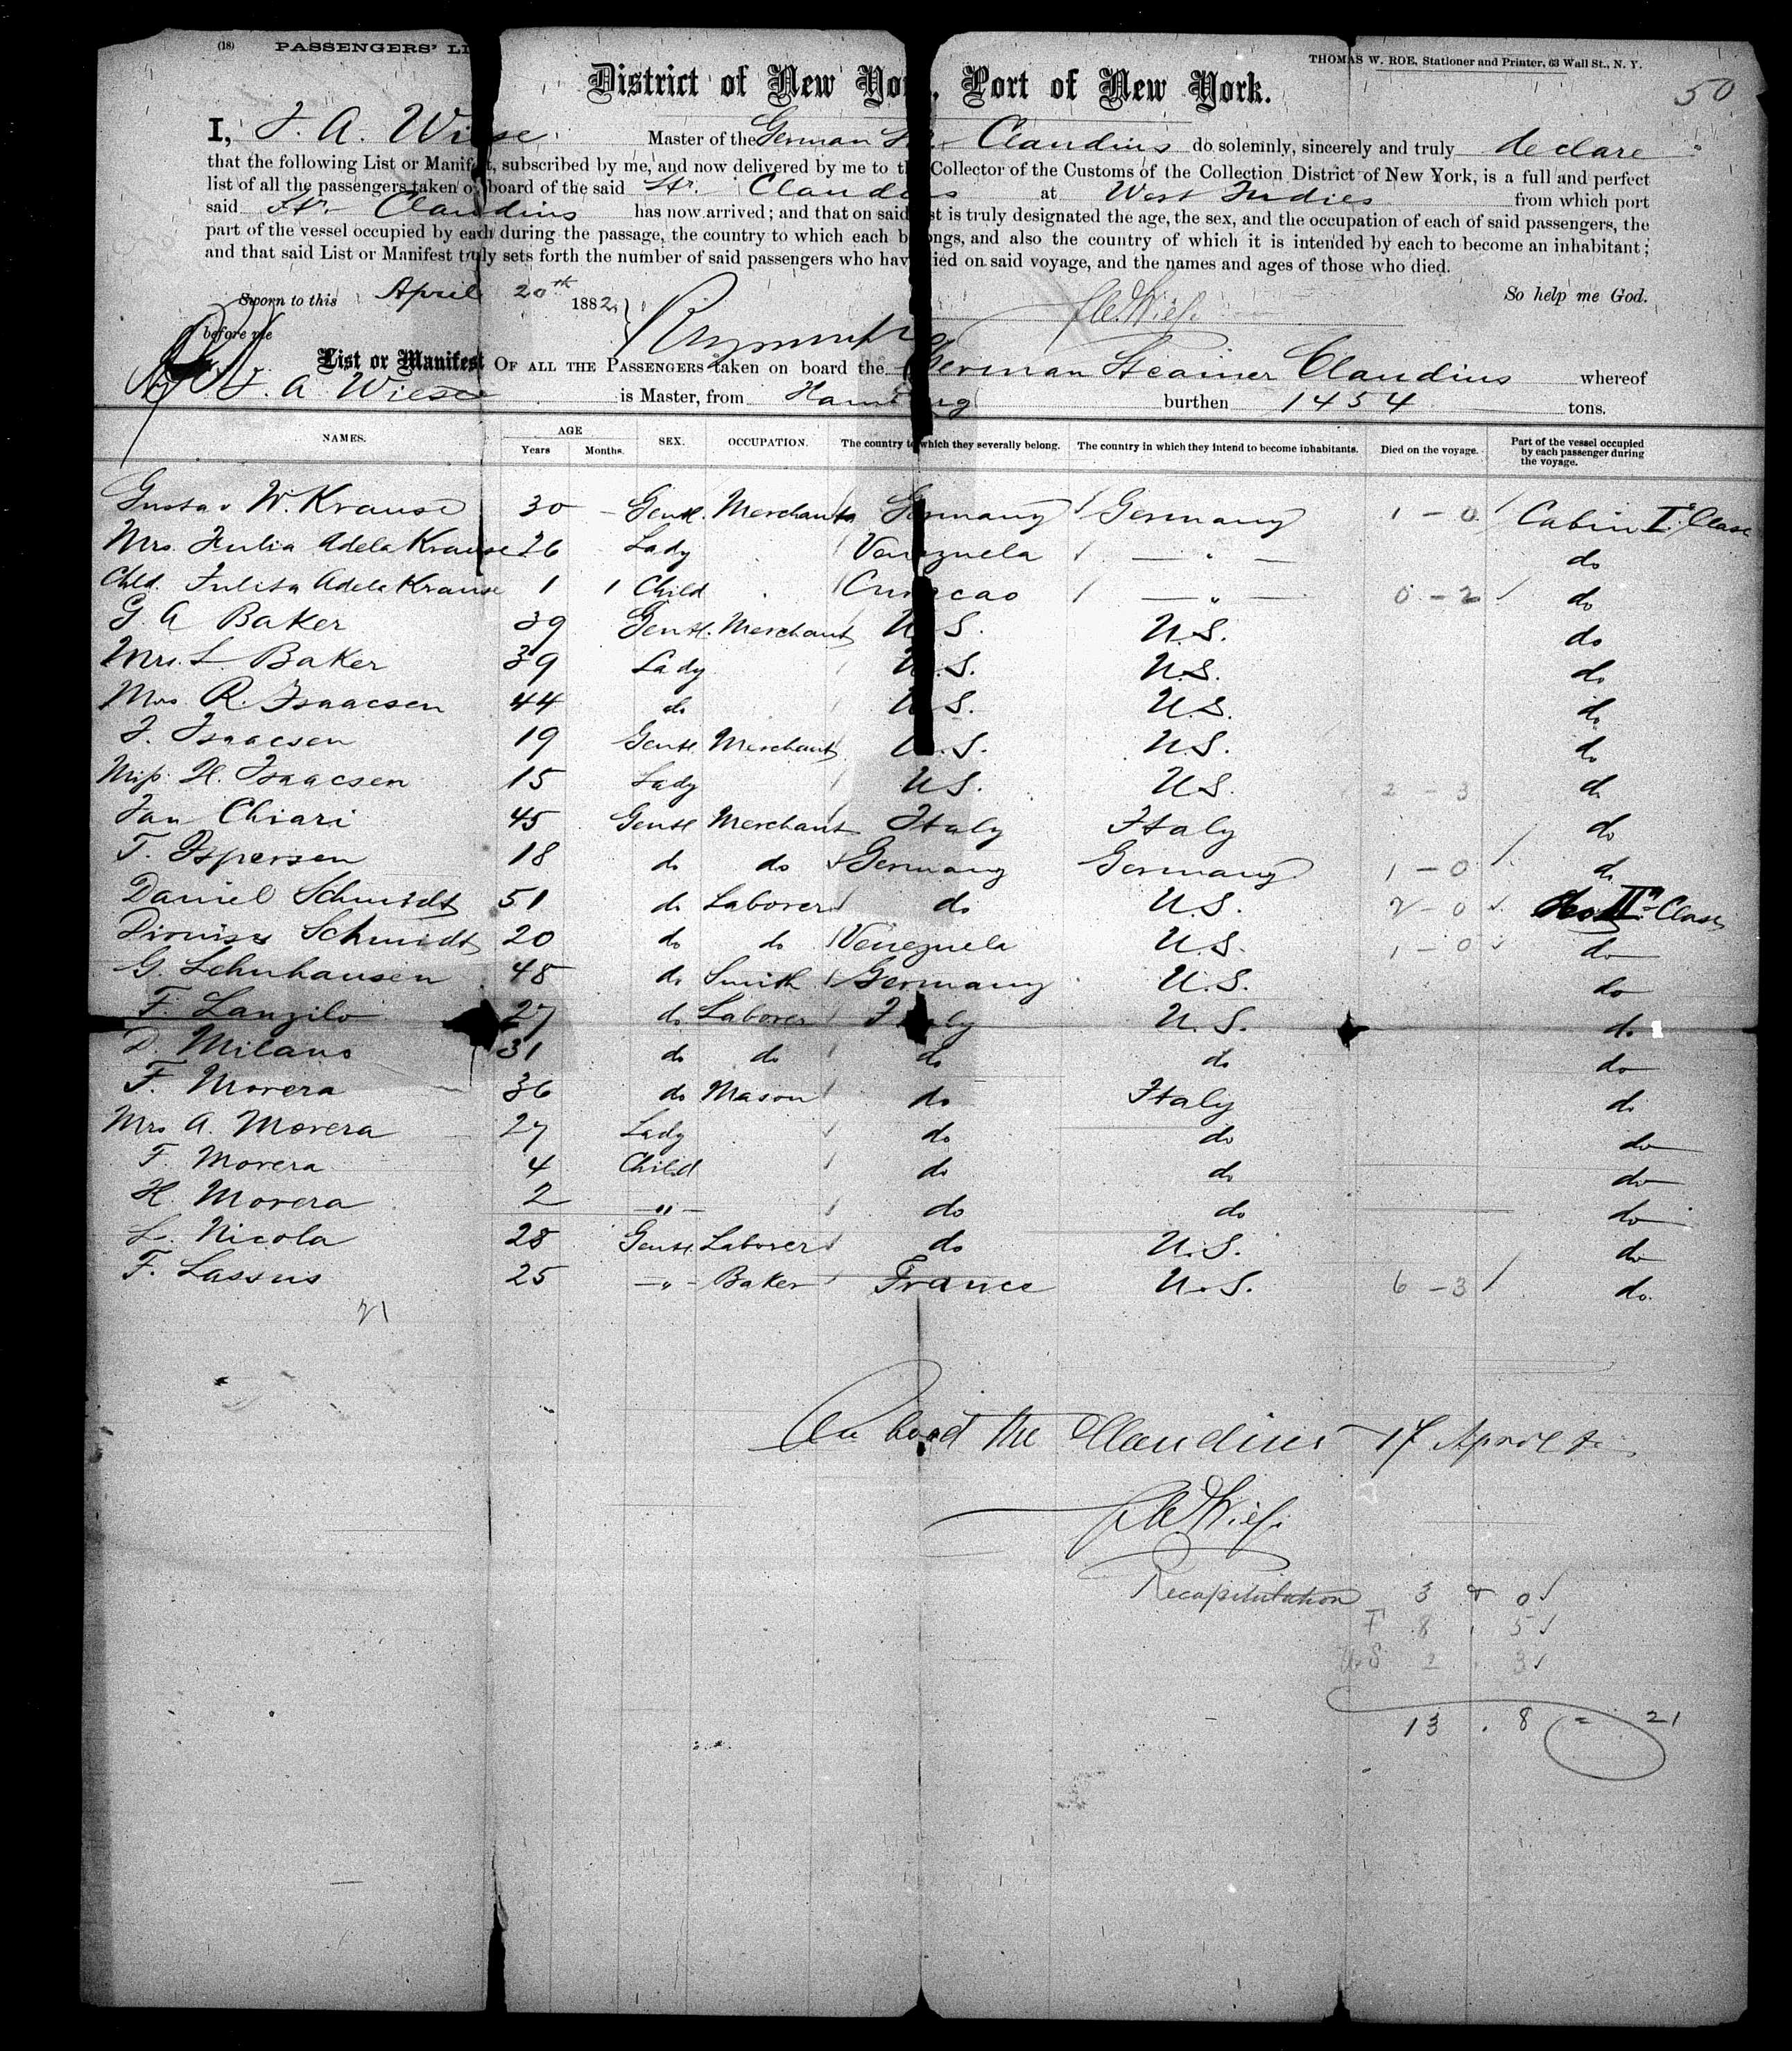 (18) PASSENGERS' LI
THOMAS W. ROE, Stationer and Printer, 63 Wall St., N. Y.
50
District of New Yo , Port of New York.
I, J. A. Wiese Master of the German Str. Claudius do solemnly, sincerely and truly declare
that the following List or Manifest, subscribed by me, and now delivered by me to the Collector of the Customs of the Collection District of New York, is a full and perfect
list of all the passengers taken on board of the said Str. Claudius at West Indies from which port
said Str. Claudius has now arrived; and that on said list is truly designated the age, the sex, and the occupation of each of said passengers, the
part of the vessel occupied by each during the passage, the country to which each belongs, and also the country of which it is intended by each to become an inhabitant;
and that said List or Manifest truly sets forth the number of said passengers who have died on said voyage, and the names and ages of those who died.
Sworn to this April 20th 1882, So help me God.
before me
List or Manifest OF ALL THE PASSENGERS taken on board the German Steamer Claudius whereof
J. A. Wiese is Master, from Hamburg burthen 1454 tons.
NAMES. AGE Years Months. SEX. OCCUPATION. The country to which they severally belong. The country in which they intend to become inhabitants. Died on the voyage. Part of the vessel occupied by each passenger during the voyage.
Gustav W. Krause 30 - Gentl. Merchant Germany Germany 1 - 0 Cabin I. Class
Mrs. Julia Adela Krause 26 Lady Venezuela — " — do
Chld. Julita Adela Krause 1 1 Child Curacao — " — 0 - 2 do
G. A Baker 39 Gentl. Merchant U.S. U.S. do
Mrs. L Baker 39 Lady U.S. U.S. do
Mrs R. Isaacsen 44 do U.S. U.S. do
J. Isaacsen 19 Gentl. Merchant U.S. U.S. do
Miss. H. Isaacsen 15 Lady U.S. U.S. 2 - 3 do
Jan Chiari 45 Gentl Merchant Italy Italy do
T. Ispersen 18 do do Germany Germany 1 - 0 do
Daniel Schmidt 51 do Laborer do U.S. 2 - 0 IIn Class
Dionisex Schmidt 20 do do Venezuela U.S. 1 - 0 do
G. Lehnhausen 48 do Smith Germany U.S. do
F. Lanzilo 27 do Laborer Italy U.S. do
D. Milano 31 do do do do do
F. Morera 36 do Mason do Italy do
Mrs A. Morera 27 Lady do do do
F. Morera 4 Child do do do
H. Morera 2 — " — do do do
L. Nicola 28 Gentl. Laborer do U.S. do
F. Lassus 25 — " — Baker France U.S. 6 - 3 do.
21
On board the Claudius 17 April
Recapitulation 3 0
F 8 . 5
U.S 2 . 3
13 . 8 = 21